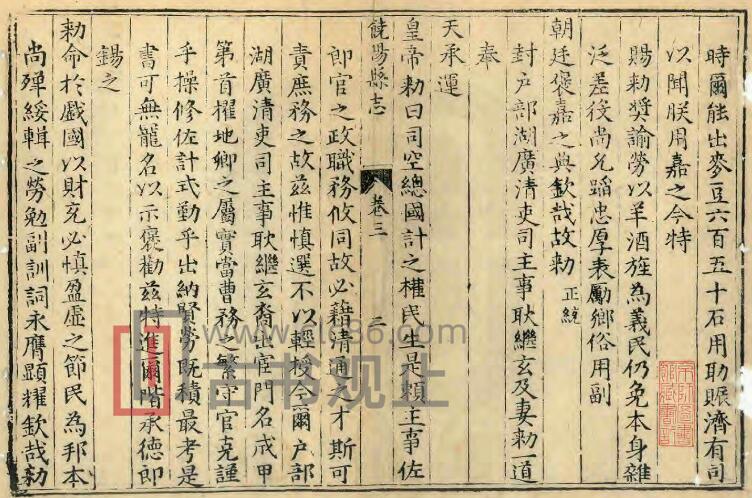 時爾能出麥豆六百五十石用助賑濟有司
以聞朕用嘉之今特
賜勅獎諭勞以羊酒旌為義民仍免本身雜
泛差役尚允蹈忠厚表勵鄉俗用副
朝廷褒嘉之典欽哉故勅 正統
封戶部湖廣清吏司主事耿繼玄及妻勅一道
奉
天承運
皇帝勅曰司空總國計之權民生是賴主事佐
饒陽縣志
卷三
三
郎官之政職務攸同故必籍清通之才斯可
責庶務之故茲惟慎選不以輕授今爾戶部
湖廣清吏司主事耿繼玄裔出宦門名戒甲
第首擢地卿之屬實當曹務之繁守官克謹
乎操修佐計式勤乎出納賢勞既積最考是
書可無寵名以示褒勸茲特進爾階承德郎
錫之
勅命於戲國以財充必慎盈虛之節民為邦本
尚殫綏輯之勞勉副訓詞永膺顯耀欽哉勅
www.gs86.com
古书观上